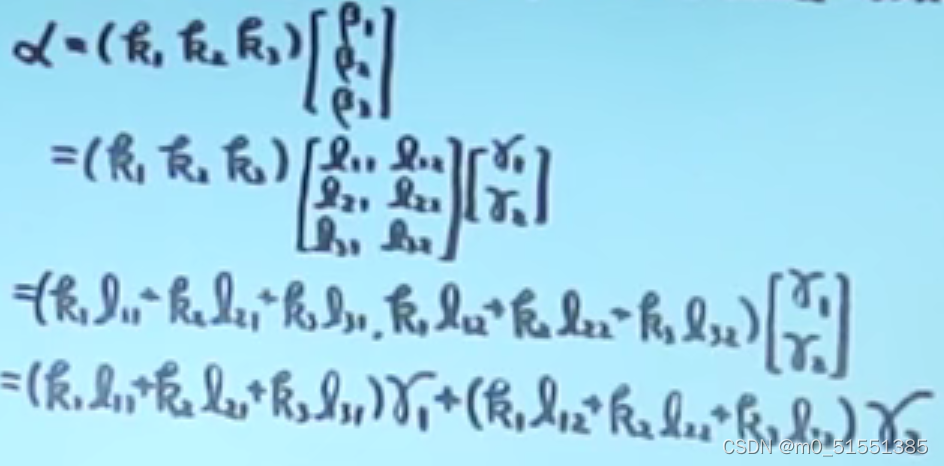 α=(k₁ k₂ k₃)[β₁ β₂ β₃]
=(k₁ k₂ k₃)[l₁₁ l₁₂ l₂₁ l₂₂ l₃₁ l₃₂][γ₁ γ₂]
=(k₁l₁₁+k₂l₂₁+k₃l₃₁, k₁l₁₂+k₂l₂₂+k₃l₃₂)[γ₁ γ₂]
=(k₁l₁₁+k₂l₂₁+k₃l₃₁)γ₁+(k₁l₁₂+k₂l₂₂+k₃l₃₂)γ₂
CSDN @m0_51551385